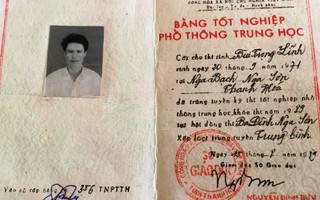 CỘNG HÒA XÃ HỘI CHỦ NGHĨA VIỆT NAM
BẰNG TỐT NGHIỆP
PHỔ THÔNG TRUNG HỌC
Cấp cho thí sinh Bùi Trọng Linh
sinh ngày 30 tháng 9 năm 1971
tại Nga Bạch, Nga Sơn
Thanh Hóa
đã trúng tuyển kỳ thi tốt nghiệp phổ
thông trung học, khóa thi năm 1989
tại hội đồng thi Ba Đình Nga Sơn
Xếp loại trúng tuyển Trung bình
Ngày
Giám đốc Sở Giáo dục
SỞ
GIÁO DỤC
Vào sổ cấp bằng số 356 TNPTTH
NGUYỄN ĐÌNH